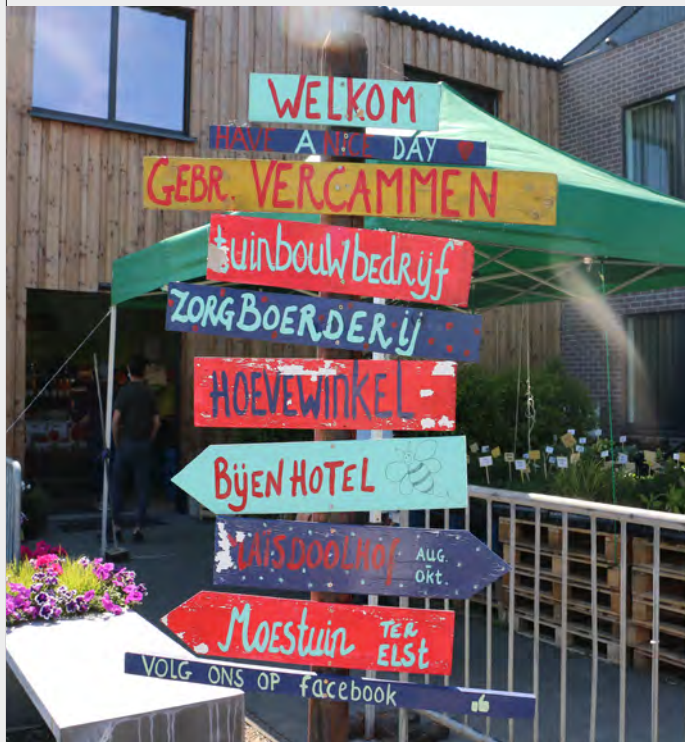 WELKOM
HAVE A NICE DAY
GEBR. VERCAMMEN
tuinbouwbedrijf
ZORGBOERDERIJ
HOEVEWINKEL
BIJENHOTEL
MAISDOOLHOF AUG.
OKT.
MOESTUIN TER
ELST
VOLG ONS OP facebook